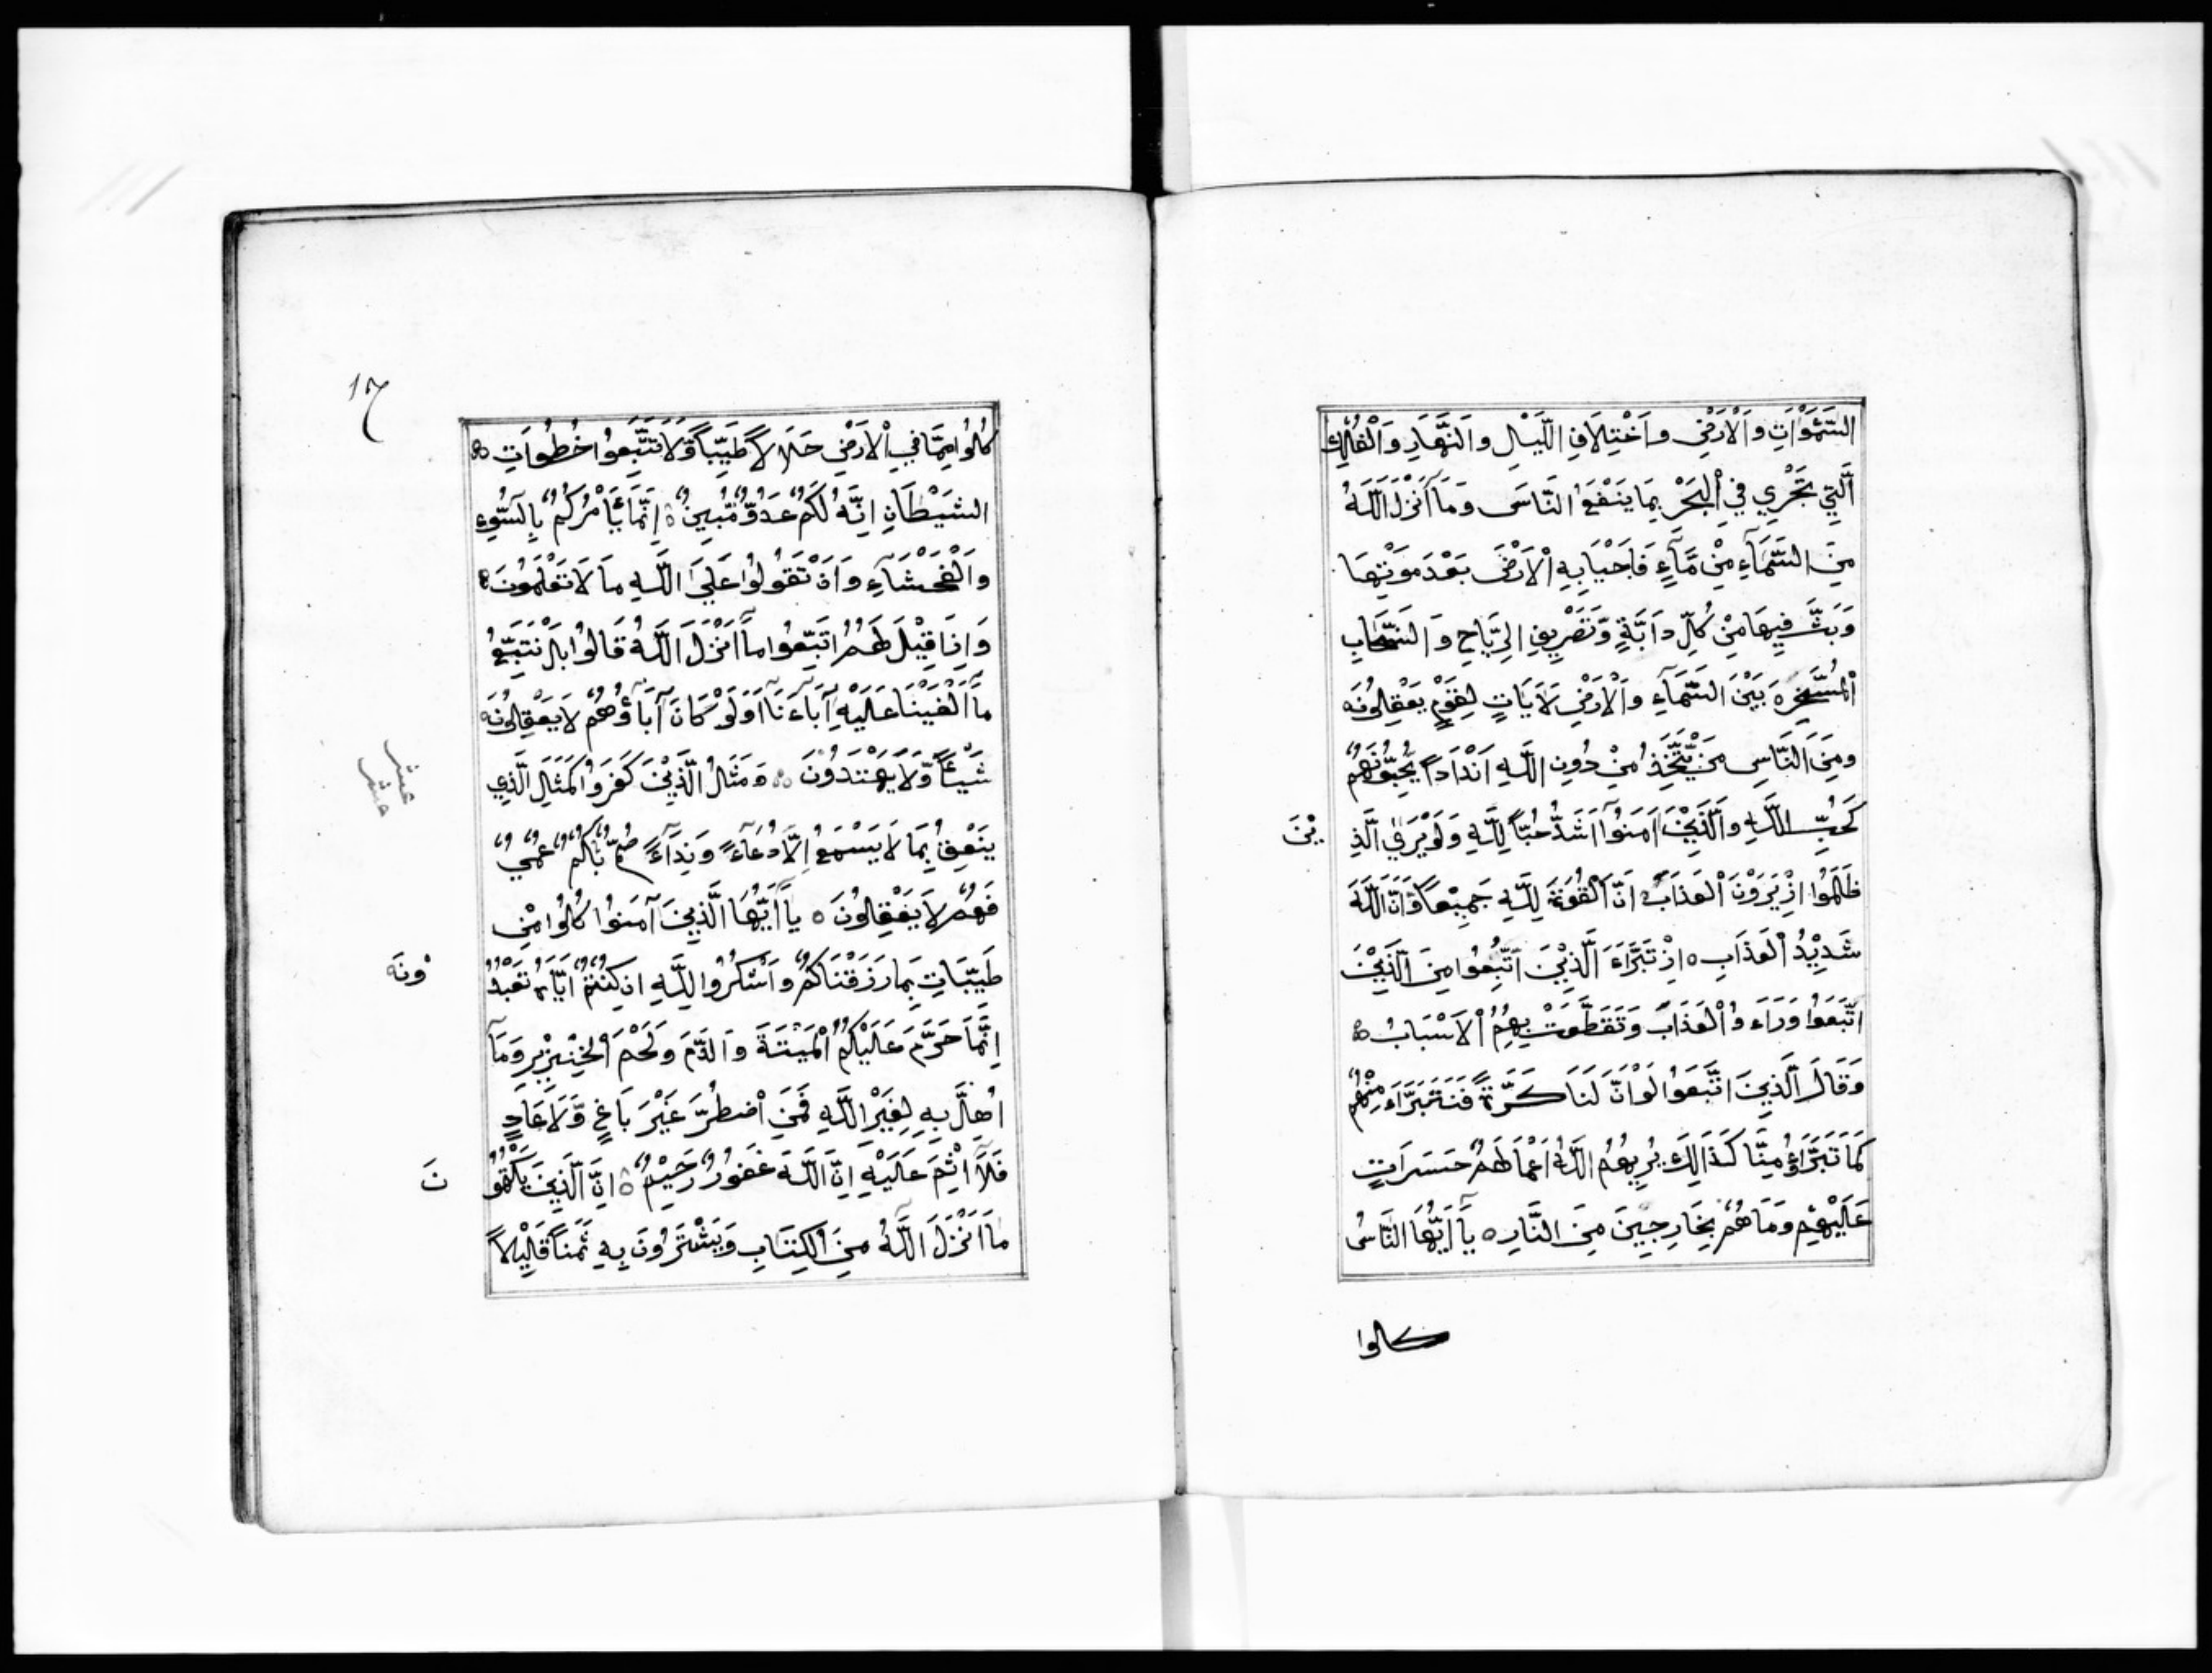 السَّمٰوَاتِ وَالْاَرْضِ وَاَخْتِلَافِ الَّيْلِ وَالنَّهَارِ وَالْفُلْكِ
الَّتِيْ تَجْرِي فِي الْبَحْرِ بِمَا يَنْفَعُ النَّاسَ وَمَآ اَنْزَلَ اللّٰهُ
مِنَ السَّمَآءِ مِنْ مَّآءٍ فَاَحْيَا بِهِ الْاَرْضَ بَعْدَ مَوْتِهَا
وَبَثَّ فِيهَا مِنْ كُلِّ دَآبَّةٍ وَّتَصْرِيفِ الرِّيَاحِ وَالسَّحَابِ
الْمُسَخَّرِ بَيْنَ السَّمَآءِ وَالْاَرْضِ لَاَيَاتٍ لِقَوْمٍ يَعْقِلُونَ ه
وَمِنَ النَّاسِ مَنْ يَّتَّخِذُ مِنْ دُونِ اللّٰهِ اَنْدَاداً يُحِبُّونَهُمْ
كَحُبِّ اللّٰهِ وَالَّذِيْنَ اٰمَنُوْٓا اَشَدُّ حُبّاً لِلّٰهِ وَلَوْ يَرَي الَّذِ يْنَ
ظَلَمُوْا اِذْ يَرَوْنَ الْعَذَابَ اَنَّ الْقُوَّةَ لِلّٰهِ جَمِيْعاً وَّاَنَّ اللّٰهَ
شَدِيْدُ الْعَذَابِ ه اِذْ تَبَرَّاَءَ الَّذِيْنَ اتُّبِعُوا مِنَ الَّذِيْنَ
اتَّبَعَوْا وَرَاَءَ وُ الْعَذَابَ وَتَقَطَّعَتْ بِهِمُ الْاَسْبَابُ ه
وَقَالَ الَّذِينَ اتَّبَعَوْا لَوْ اَنَّ لَنَا كَرَّةً فَنَتَبَرَّاَءَ مِنْهُمْ
كَمَا تَبَرَّاؤُ مِنَّا كَذَالِكَ يُرِيهُمُ اللّٰهُ اَعْمَالَهُمْ حَسَرَاتٍ
عَلَيْهِمْ وَمَا هُمْ بِخَارِجِينَ مِنَ النَّارِ ه يَآ اَيُّهَا النَّاسُ
كلوا
17
كُلُوْا مِمَّا فِي الْاَرْضِ حَلَالاً طَيِّباً وَّلَا تَتَّبِعُوا خُطُوَاتِ
الشَّيْطَانِ اِنَّهُ لَكُمْ عَدُوٌّ مُّبِينٌ ه اِنَّمَا يَأْمُرُكُمْ بِالسُّوٓءِ
وَالْفَحْشَآءِ وَاَنْ تَقُولُوْا عَلَي اللّٰهِ مَا لَا تَعْلَمُونَ ه
وَاِذَا قِيْلَ لَهُمُ اتَّبِعُوا مَآ اَنْزَلَ اللّٰهُ قَالُوْا بَلْ نَتَّبِعُ
مَآ اَلْفَيْنَا عَلَيْهِ آبَآءَنَا اَوَلَوْ كَانَ آبَآؤُهُمْ لَا يَعْقِلُونَ
شَيْئاً وَّلَا يَهْتَدُوْنَ ه وَمَثَلُ الَّذِيْنَ كَفَرَوْا كَمَثَلِ الَّذِي
عشر
عشر
يَنْعِقُ بِمَا لَا يَسْمَعُ اِلَّا دُعَآءً وَّنِدَآءً صُمٌّ بُكْمٌ عُمْيٌ
فَهُمْ لَا يَعْقِلُوْنَ ه يَآ اَيُّهَا الَّذِيْنَ آمَنُوْا كُلُوْا مِنْ
طَيِّبَاتِ مَا رَزَقْنَاكُمْ وَاَشْكُرُوْا لِلّٰهِ اِنْ كُنْتُمْ اِيَّاهُ تَعْبُدُ وْنَ ه
اِنَّمَا حَرَّمَ عَلَيْكُمُ الْمَيْتَةَ وَالدَّمَ وَلَحْمَ الْخِنْزِيْرِ وَمَآ
اُهِلَّ بِهِ لِغَيْرِ اللّٰهِ فَمَنِ اضْطُرَّ غَيْرَ بَاغٍ وَّلَا عَادٍ
فَلَآ اِثْمَ عَلَيْهِ اِنَّ اللّٰهَ غَفُوْرٌ رَّحِيْمٌ ه اِنَّ الَّذِيْنَ يَكْتُمُوْ نَ
مَآ اَنْزَلَ اللّٰهُ مِنَ الْكِتَابِ وَيَشْتَرُوْنَ بِهِ ثَمَناً قَلِيْلاً